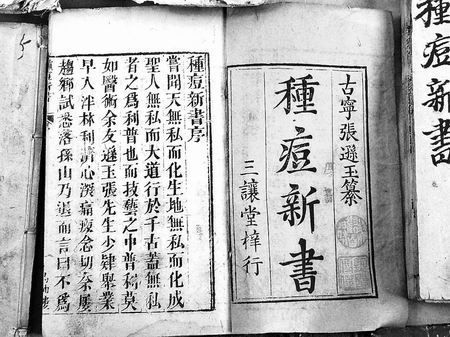 種痘新書
古寧張遜玉纂
種痘新書
三讓堂梓行
種痘新書序
嘗聞天無私而化生地無私而化成
聖人無私而大道行於千古蓋無私
者之為利普也而技藝之中普稱莫
如醫術余友遜玉張先生少肄舉業
早入泮林利濟心深痛瘝念切奈屢
趨鄉試悉落孫山乃退而言曰不為